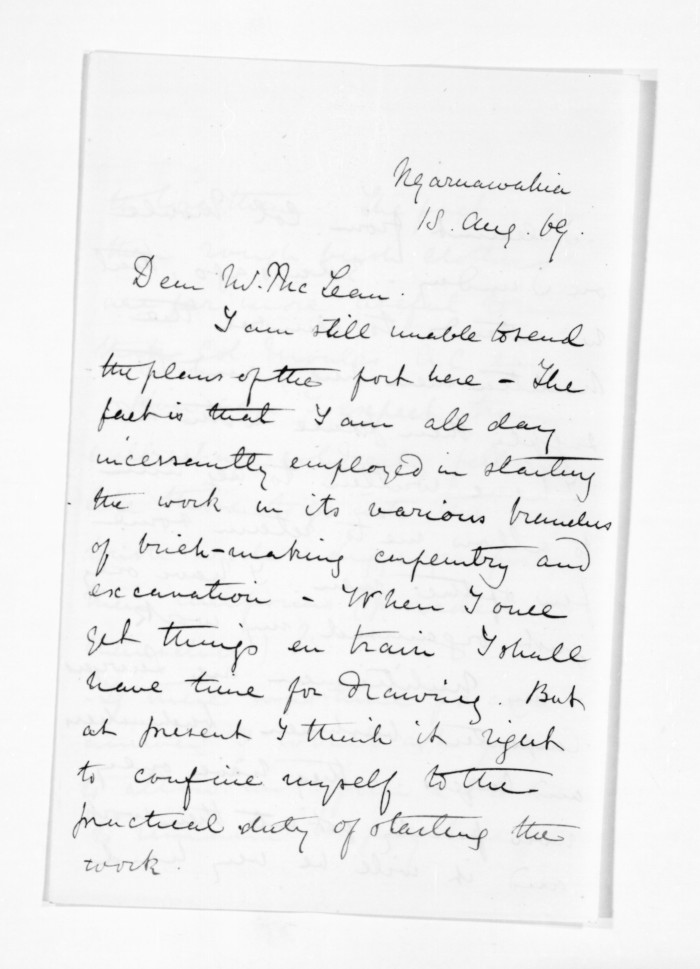 Ngaruawahia
18. Aug. 69.
Dear Mr. McLean.
I am still unable to send
the plans of the fort here – The
fact is that I am all day
incessantly employed in starting
the work in its various branches
of brick-making carpentry and
excavation – When I once
get things en train I shall
have time for drawing. But
at present I think it right
to confine myself to the
practical duty of starting the
work.